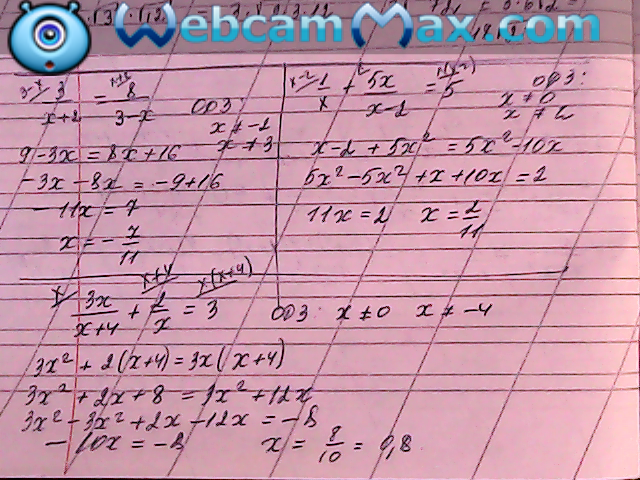 WebcamMax.com
3-x/ 3/(x+2) = x+2/ 8/(3-x)
ОДЗ:
x ≠ -2
x ≠ 3
9-3x = 8x+16
-3x-8x = -9+16
-11x = 7
x = -7/11
x-2/ 1/x + x/ 5x/(x-2) = x(x-2)/ 5
ОДЗ:
x ≠ 0
x ≠ 2
x-2+5x² = 5x²-10x
5x²-5x²+x+10x = 2
11x = 2 x = 2/11
x/ 3x/(x+4) + x+4/ 2/x = x(x+4)/ 3
ОДЗ: x ≠ 0 x ≠ -4
3x² + 2(x+4) = 3x(x+4)
3x² + 2x + 8 = 3x² + 12x
3x² - 3x² + 2x - 12x = -8
-10x = -8 x = 8/10 = 0,8